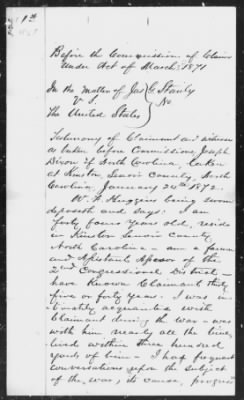 Before the Commission of Claims
Under Act of March 3, 1871
In the matter of Jas G Stanly
V. S. No
The United States
Testimony of Claimant and witness
as taken before Commissioner Joseph
Dixon of North Carolina taken
at Kinston, Lenoir County, North
Carolina, January 24th 1872.
W. F. Huggins being sworn
deposeth and says: I am
forty four years old, reside
in Kinston Lenoir County
North Carolina - am a farmer
and Assistant Assessor of the
2nd Congressional District -
have known Claimant thirty
five or forty years. I was in-
timately acquainted with
Claimant during the war - was
with him nearly all the time,
lived within three hundred
yards of him - I had frequent
conversations upon the subject
of the war, its cause, progress